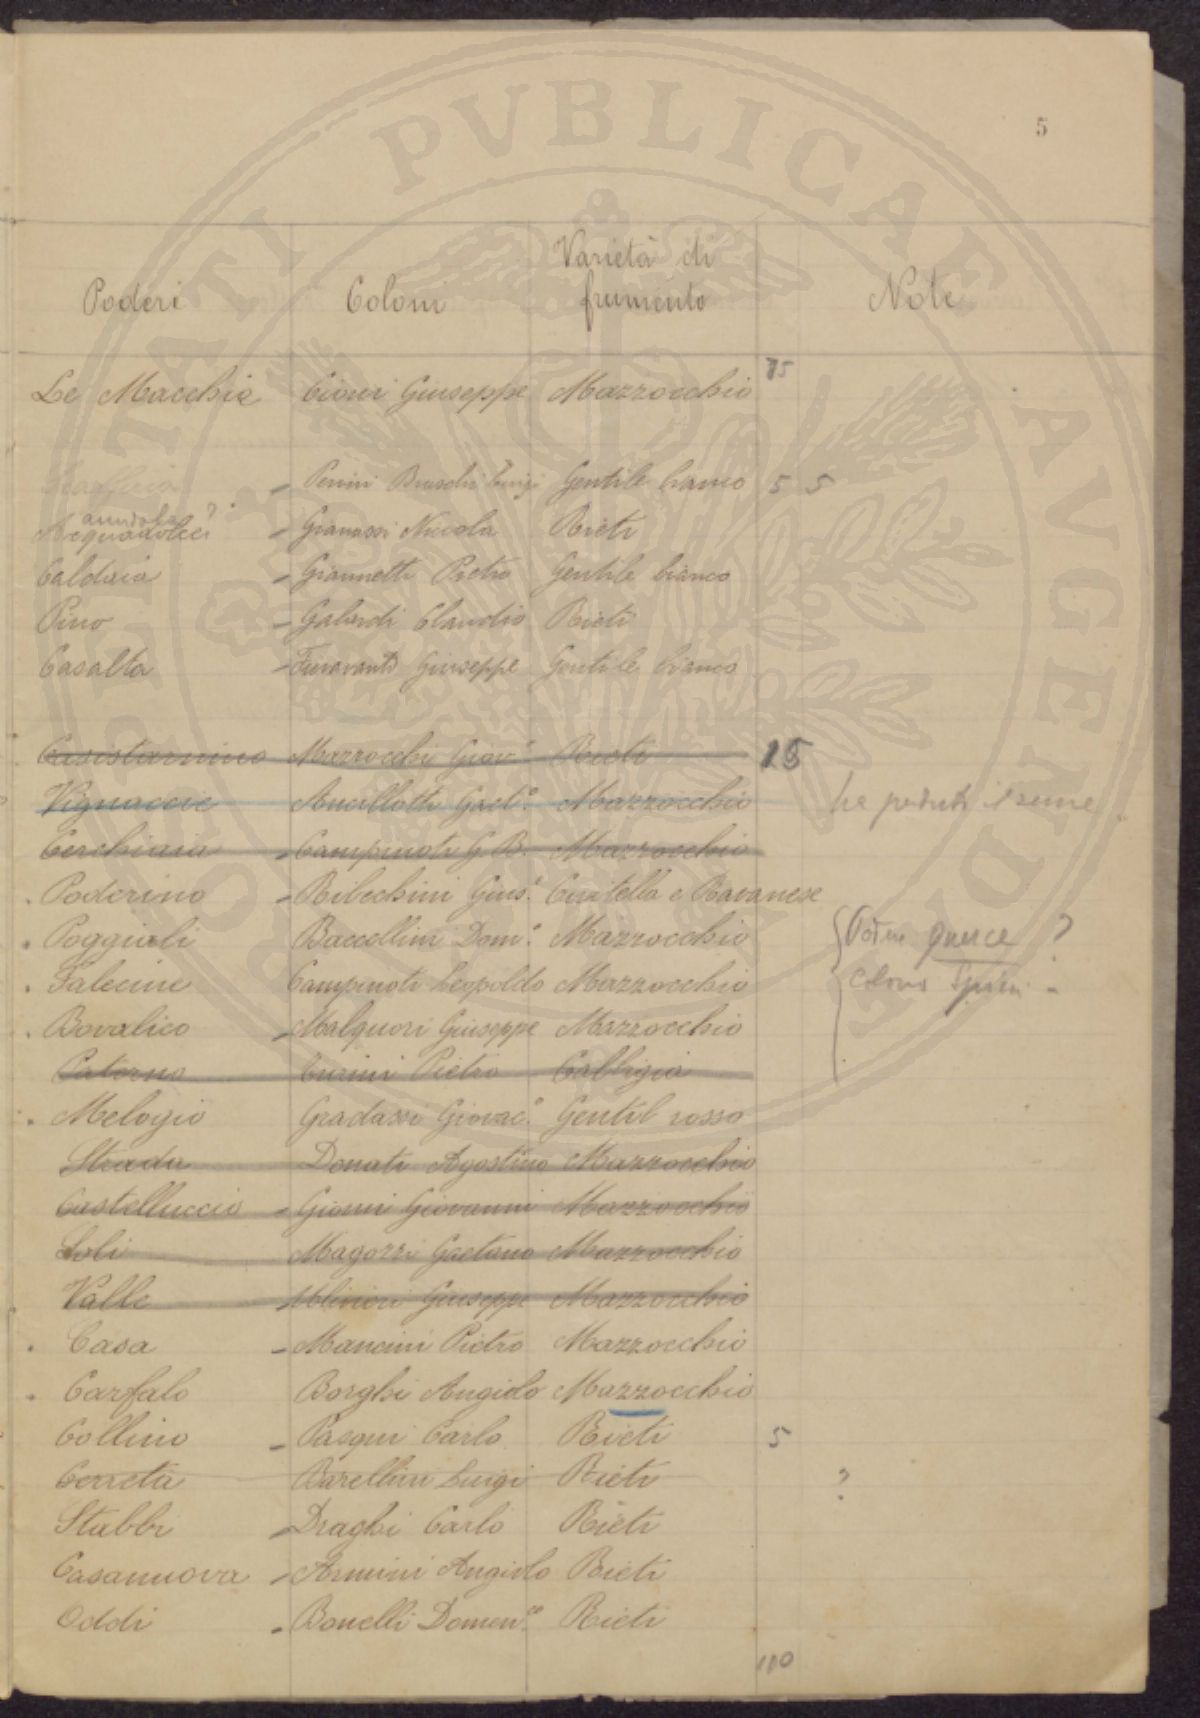 5
Poderi Coloni Varietà di frumento Note
75
Le Macchie Cioni Giuseppe Mazzocchio
Penini Bruschi Luigi Gentile bianco 5 5
Acquadolci ? Granassi Niccola Rieti
Caldaia Giannetti Pietro Gentile bianco
Pino Galardi Claudio Rieti
Casalta Fioravanti Giuseppe Gentile bianco
Casistarnino Mazzocchi Giov.i Rieti 15
Vignaccie Ancillotti Gaet.o Mazzocchio ha perduto il seme
Cerchiaia Campinoti G. B. Mazzocchio
Poderino Bilechini Gius.e Civitella e Ravanese
Poggiali Baccellini Dom.o Mazzocchio Podere Querce ?
Falecine Campinoti Leopoldo Mazzocchio Colono
Bovalico Malquori Giuseppe Mazzocchio
Paterno Curini Pietro Calbigia
Melogio Gradassi Giovac.o Gentil rosso
Strada Donati Agostino Mazzocchio
Castelluccio Gionni Giovanni Mazzocchio
Loli Magozzi Gaetano Mazzocchio
Valle Giuseppe Mazzocchio
Casa Mancini Pietro Mazzocchio
Carfalo Borghi Angiolo Mazzocchio
Collino Pasqui Carlo Rieti 5
Cerreta Barellini Luigi Rieti ?
Stabbi Draghi Carlo Rieti
Casanuova Armini Angiolo Rieti
Oddi Bonelli Domen.co Rieti
110